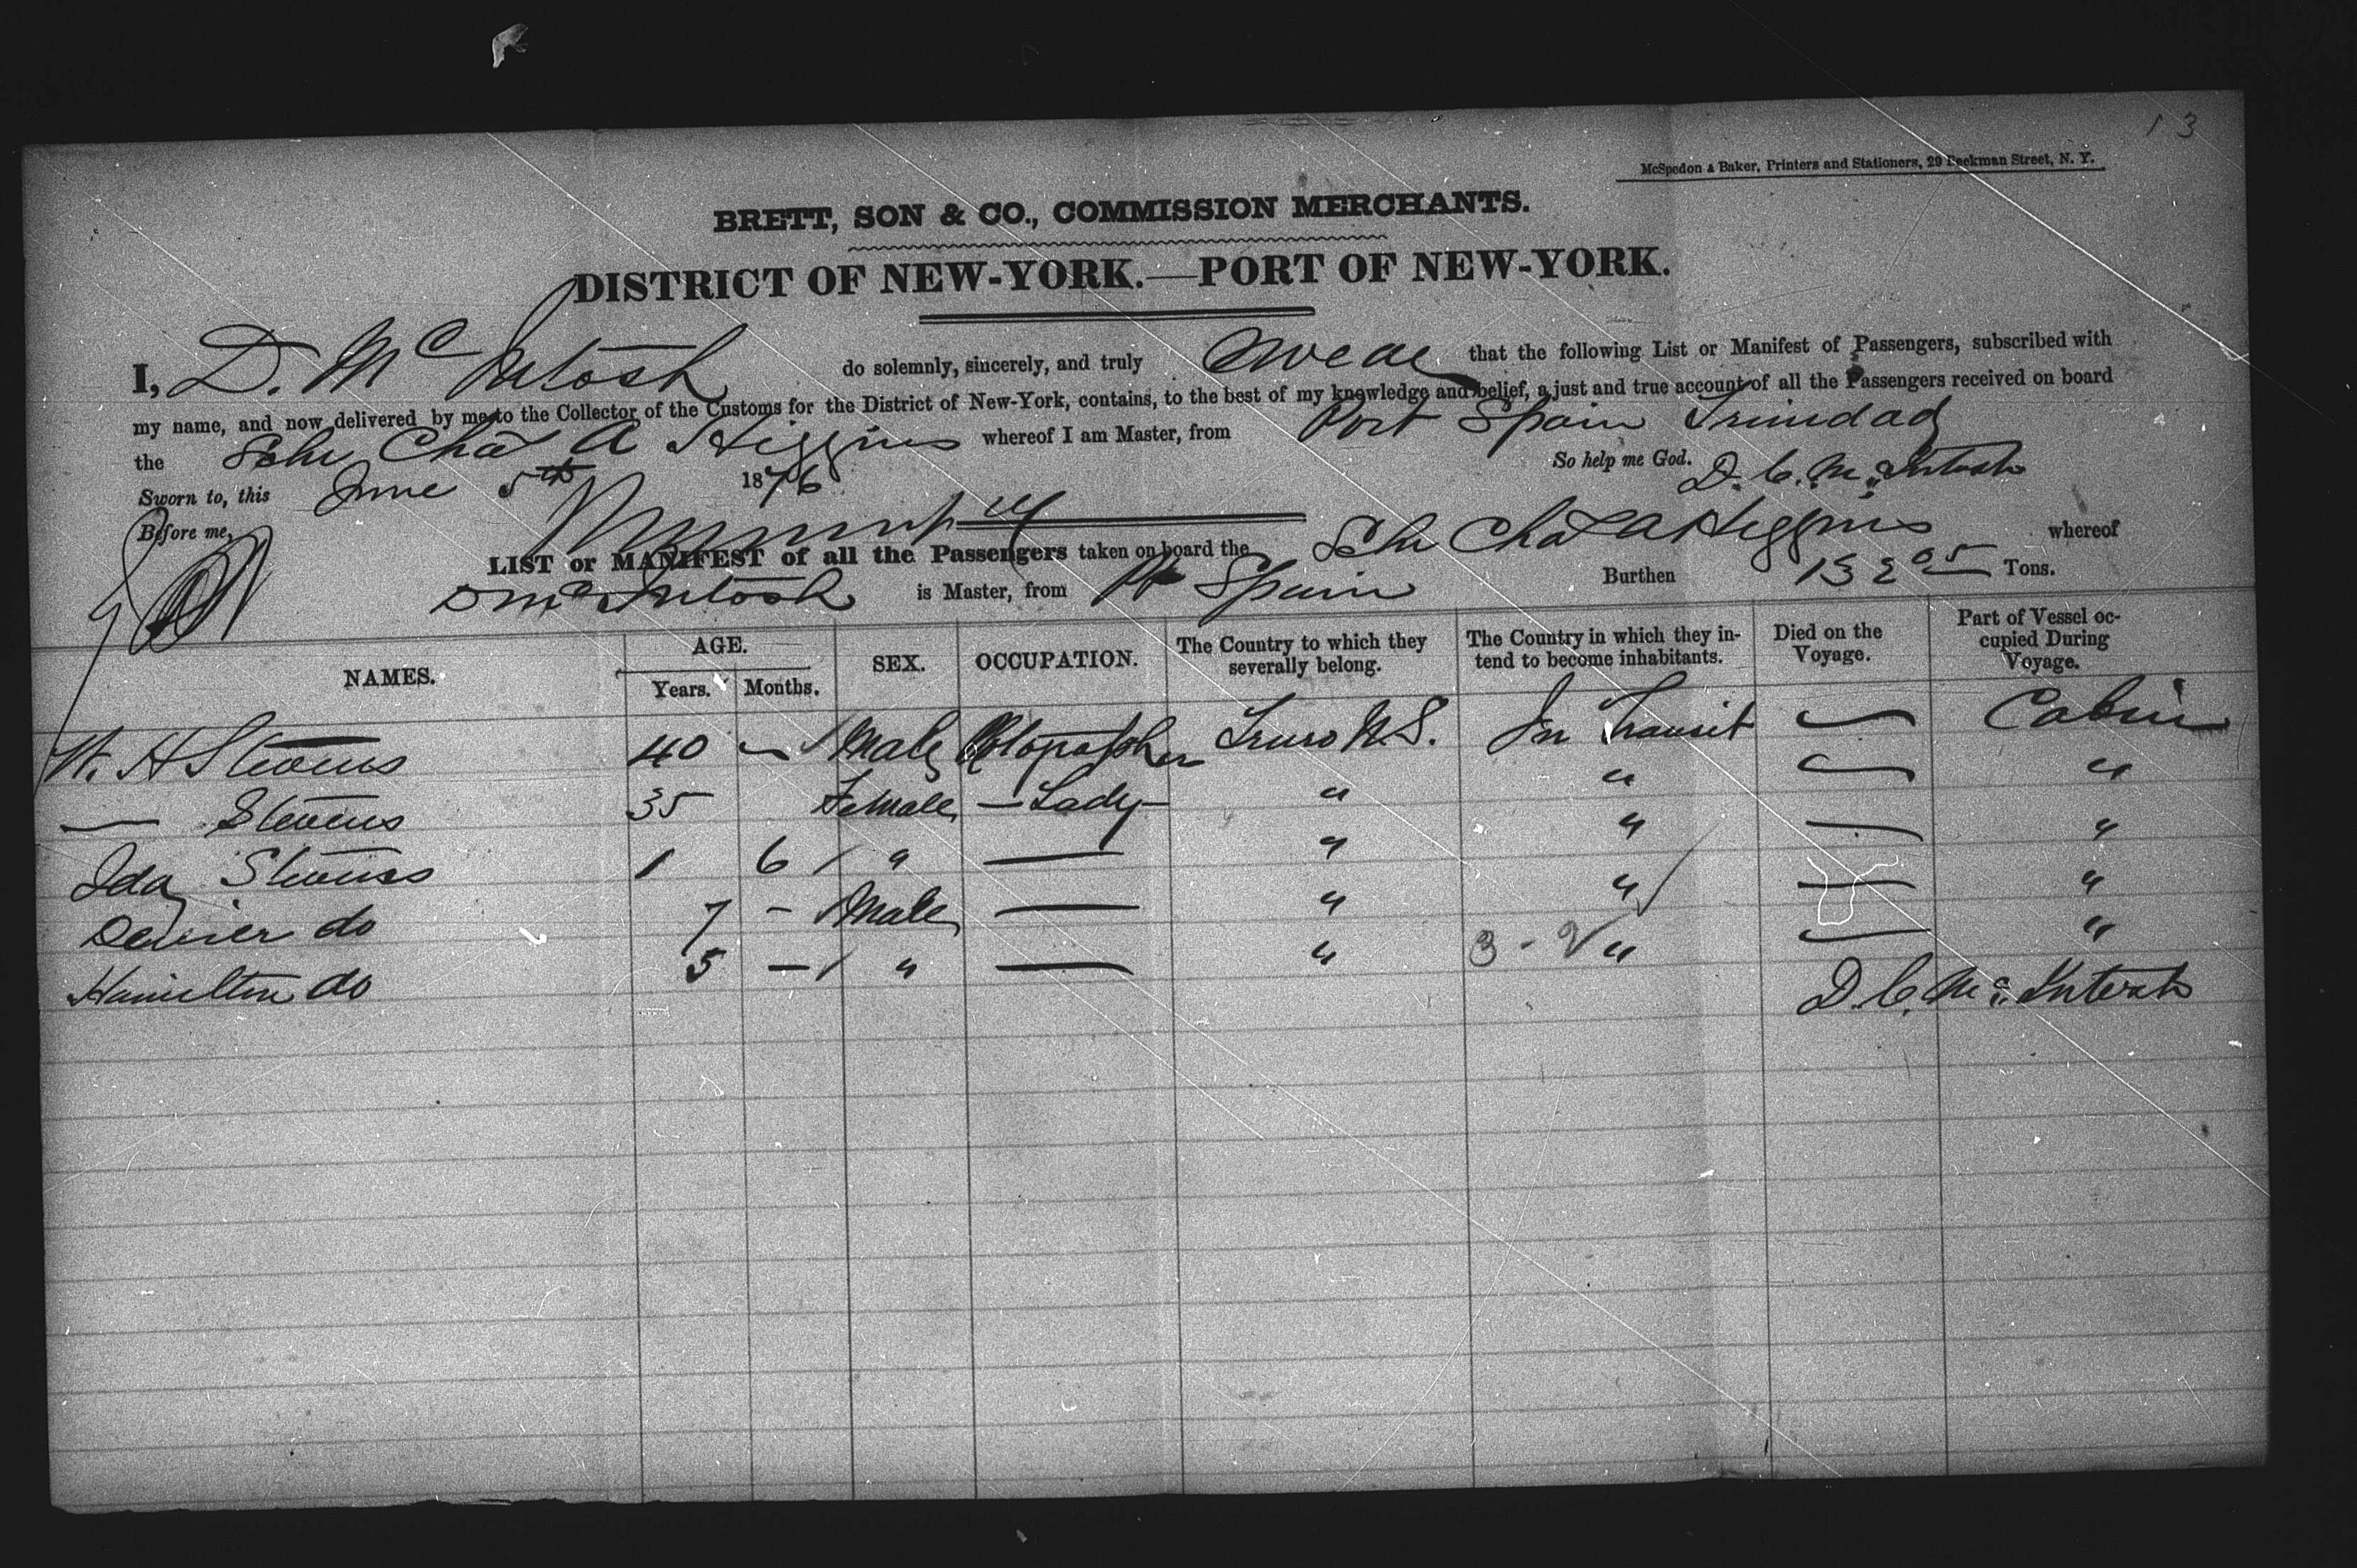 13
McSpedon & Baker, Printers and Stationers, 29 Beekman Street, N. Y.
BRETT, SON & CO., COMMISSION MERCHANTS.
DISTRICT OF NEW-YORK.—PORT OF NEW-YORK.
I, D. Mc Intosh do solemnly, sincerely, and truly swear that the following List or Manifest of Passengers, subscribed with
my name, and now delivered by me to the Collector of the Customs for the District of New-York, contains, to the best of my knowledge and belief, a just and true account of all the Passengers received on board
the Schr Chas A Higgins whereof I am Master, from Port Spain Trinidad
Sworn to, this June 5th 1876 So help me God. D. C. Mc Intosh
Before me,
LIST or MANIFEST of all the Passengers taken on board the Schr Chas A Higgins whereof
D Mc Intosh is Master, from Pt Spain Burthen Tons.
NAMES. AGE. Years. Months. SEX. OCCUPATION. The Country to which they severally belong. The Country in which they intend to become inhabitants. Died on the Voyage. Part of Vessel occupied During Voyage.
W. H Stevens 40 – Male Truro N.S. In Transit — Cabin
— Stevens 35 Female — Lady — " " — "
Ida Stevens 1 6 " — " " — "
do 7 - Male — " " — "
Hamilton do 5 — " — " 3 - 2 " — "
D. C. Mc Intosh